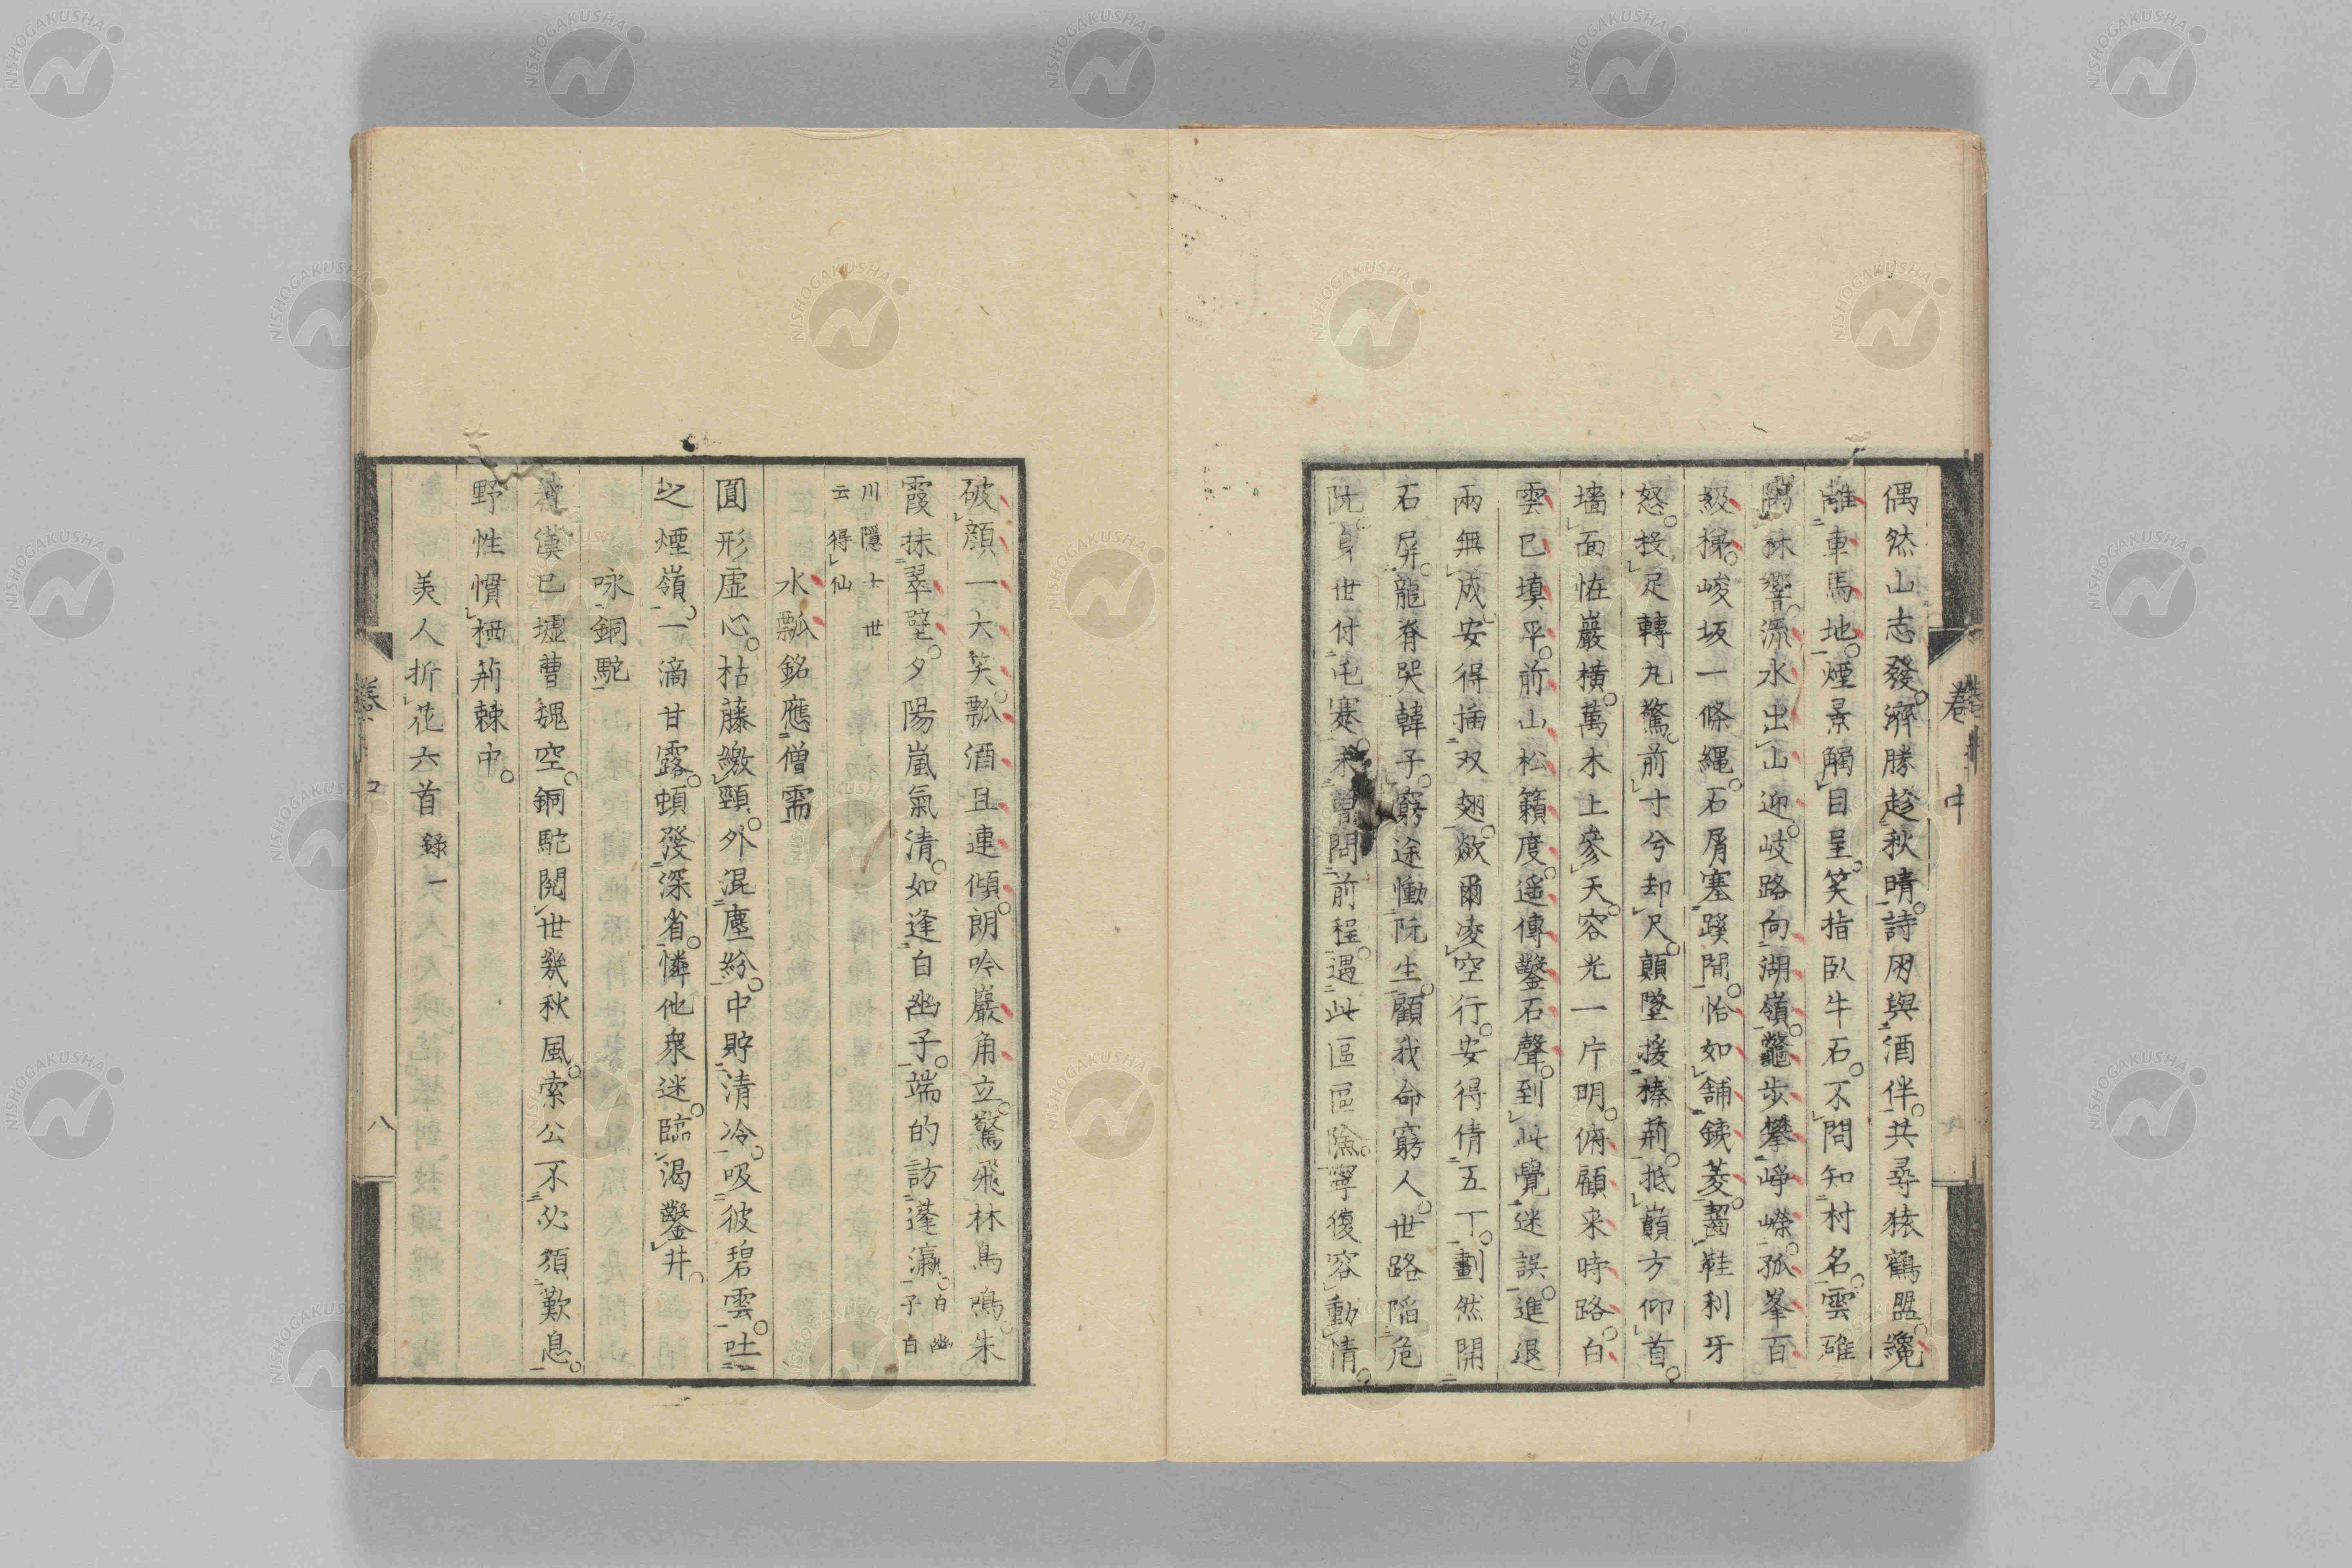 偶然山志發濟勝趁秋晴詩朋與酒伴共尋猿鶴盟纔
離車馬地煙景觸目呈笑指臥牛石不問知村名雲碓
隔林響流水出山迎岐路向湖嶺鼈步攀崢嶸孤峯百
級梯峻坂一條繩石屑塞蹊間恰如鋪鐵菱齧鞋利牙
怒投足轉丸驚前寸兮却尺顛墜援榛荊抵巔方仰首
墻面恠巖橫萬木上參天容光一片明俯顧来時路白
雲已填平前山松籟度遥傳鑿石聲到此覺迷誤進退
兩無成安得插双翅歘爾凌空行安得倩五丁劃然開
石屏龍脊哭韓子窮途慟阮生顧我命窮人世路陷危
阬身世付屯蹇未曽問前程遇此區區險寧復容動情
卷中
破顔一大笑瓢酒且連傾朗吟巖角立驚飛林鳥鳴朱
霞抹翠壁夕陽嵐氣清如逢白幽子端的訪蓬瀛白幽
子白
川隱士世
云得仙
水瓢銘應僧需
圓形虛心枯藤繳頸外混塵紛中貯清冷吸彼碧雲吐
之煙嶺一滴甘露頓發深省憐他衆迷臨渴鑿井
咏銅駝
漢已墟曹魏空銅駝閱世幾秋風索公不必須歎息
野性慣栖荊棘中
美人折花六首錄一
八